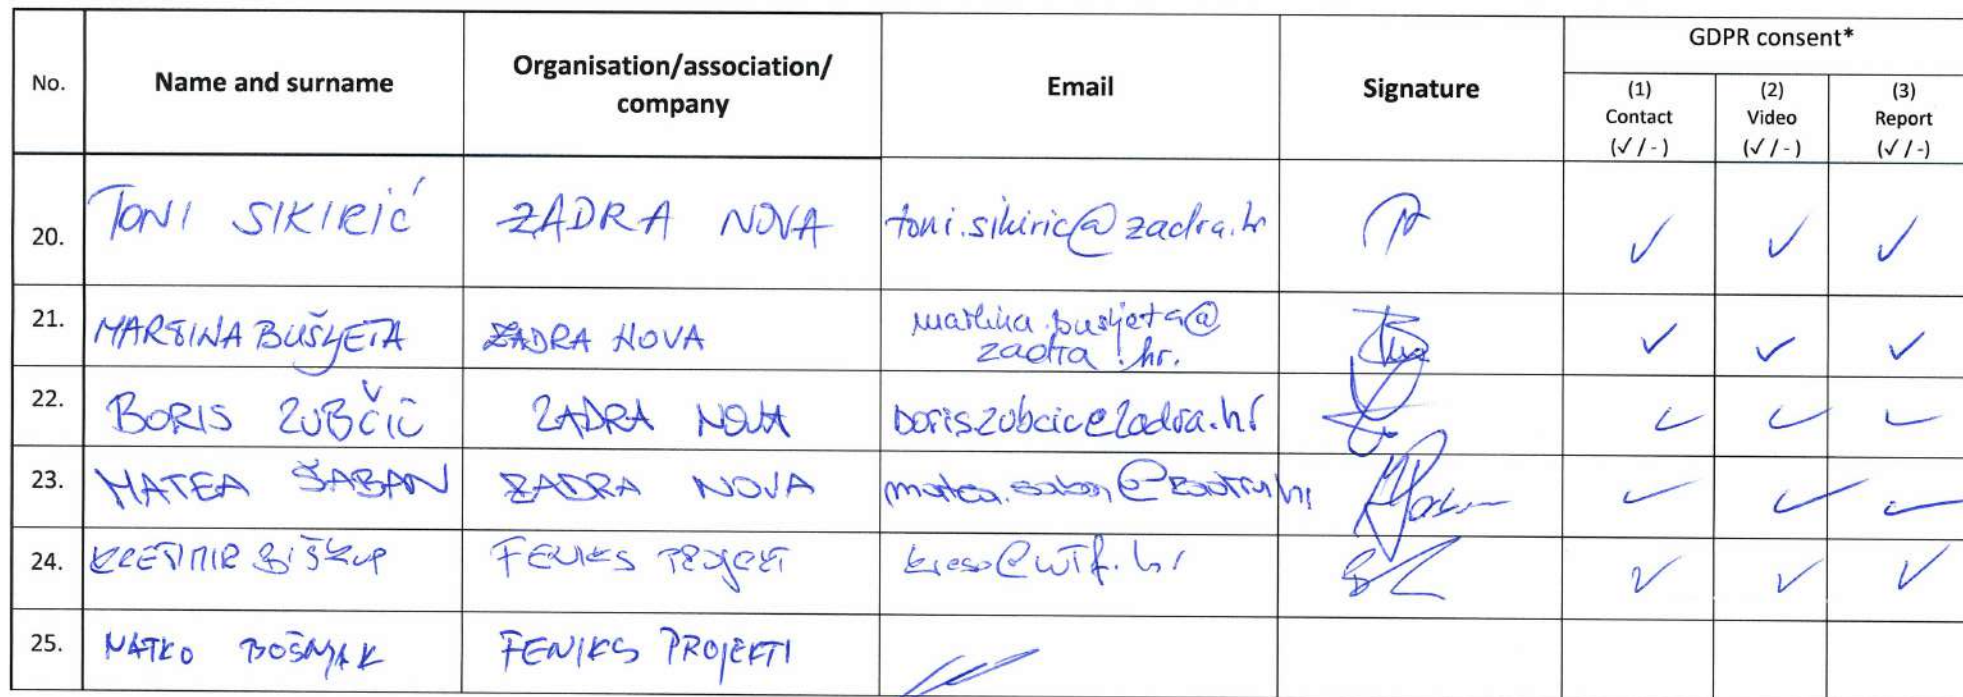 No. Name and surname Organisation/association/ company Email Signature GDPR consent*
(1) Contact (✓ / - ) (2) Video (✓ / - ) (3) Report (✓ / -)
20. TONI SIKIRIĆ ZADRA NOVA toni.sikiric@zadra.hr ✓ ✓ ✓
21. MARTINA BUŠLJETA ZADRA NOVA martina.busljeta@ zadra.hr. ✓ ✓ ✓
22. BORIS ZUBČIĆ ZADRA NOVA boris.zubcic@zadra.hr ✓ ✓ ✓
23. MATEA ŠABAN ZADRA NOVA matea.saban@zadra.hr ✓ ✓ ✓
24. KREŠIMIR BIŠKUP FENIKS PROJEKTI kreso@wtf.hr ✓ ✓ ✓
25. MATKO BOŠNJAK FENIKS PROJEKTI